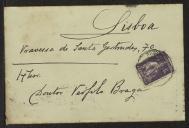 Lisboa
Travessa de Santa Gertrudes, 70
Illmo
Doutor Teófilo Braga